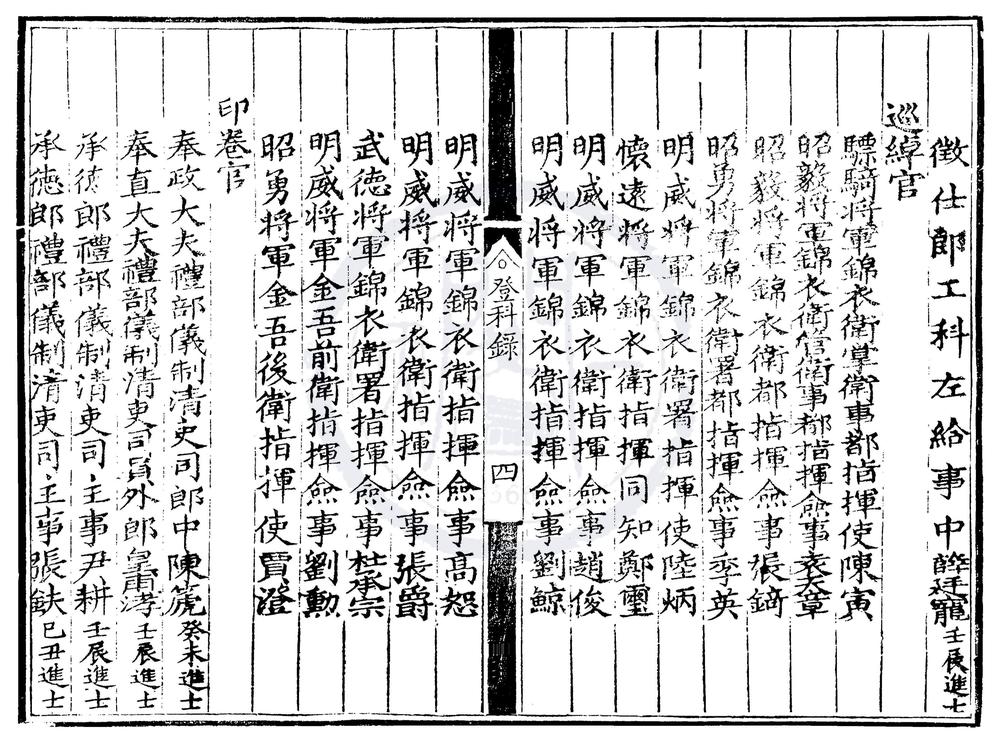 徵仕郎工科左給事中薛廷寵壬辰進士
巡綽官
驃騎將軍錦衣衛掌衛事都指揮使陳寅
昭毅將軍錦衣衛管衛事都指揮僉事袁天章
昭毅將軍錦衣衛都指揮僉事張錡
昭勇將軍錦衣衛署都指揮僉事季英
明威將軍錦衣衛署指揮使陸炳
懷遠將軍錦衣衛指揮同知鄭璽
明威將軍錦衣衛指揮僉事趙俊
明威將軍錦衣衛指揮僉事劉鯨
登科錄
四
明威將軍錦衣衛指揮僉事高恕
明威將軍錦衣衛指揮僉事張爵
武德將軍錦衣衛署指揮僉事杜承宗
明威將軍金吾前衛指揮僉事劉勳
昭勇將軍金吾後衛指揮使賈澄
印卷官
奉政大夫禮部儀制清吏司郎中陳箎癸未進士
奉直大夫禮部儀制清吏司員外郎皇甫涍壬辰進士
承德郎禮部儀制清吏司主事尹耕壬辰進士
承德郎禮部儀制清吏司主事張鈇己丑進士